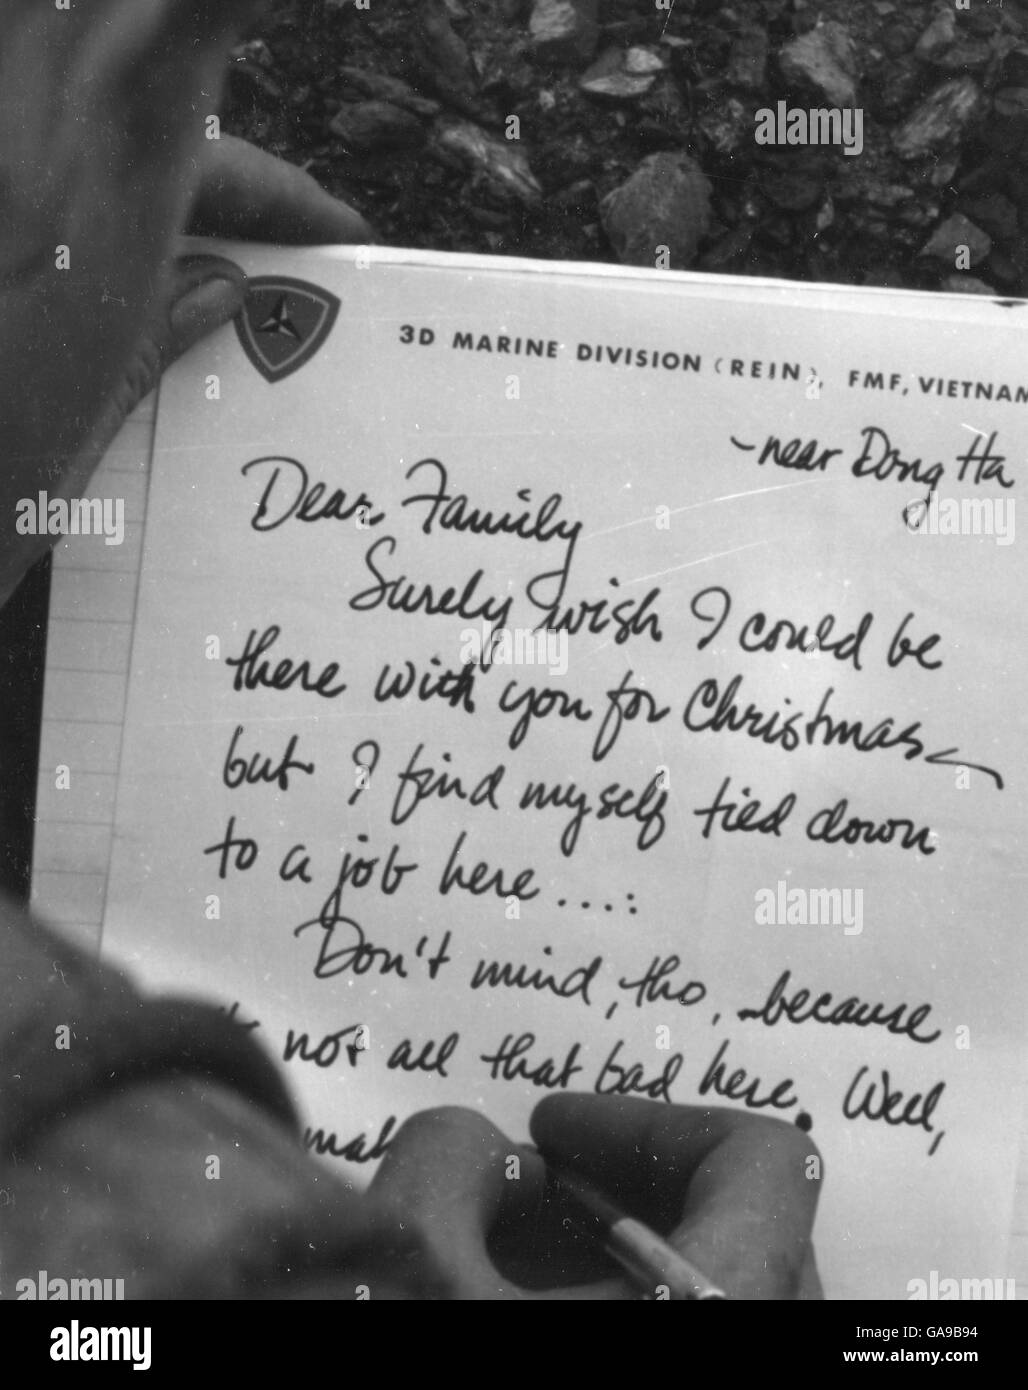 3D MARINE DIVISION (REIN), FMF, VIETNAM
-near Dong Ha
Dear Family
Surely wish I could be
there with you for Christmas
but I find myself tied down
to a job here ....:
Don't mind, tho, because
not all that bad here. Well,
alamy stock photo
GA9B94
www.alamy.com